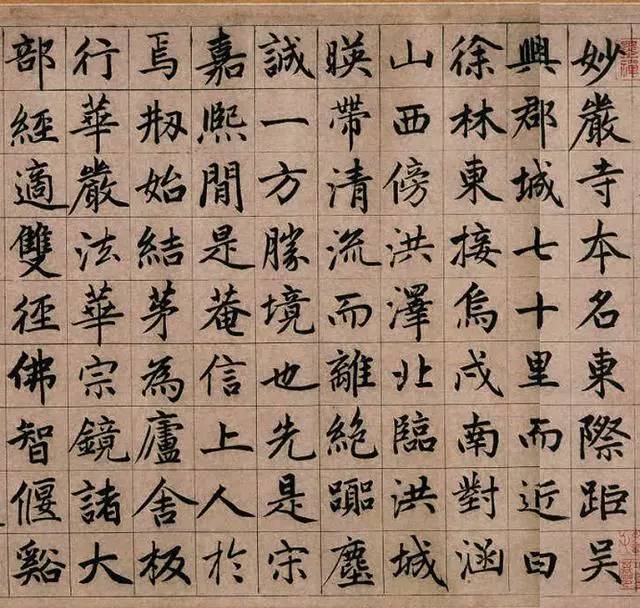 妙嚴寺本名東際距吳
興郡城七十里而近曰
徐林東接烏戍南對涵
山西傍洪澤北臨洪城
暎帶清流而離絶塵
誠一方勝境也先是宋
嘉熙間是菴信上人扵
焉刱始結茅為廬舍板
行華嚴法華宗鏡諸大
部經適雙徑佛智偃谿